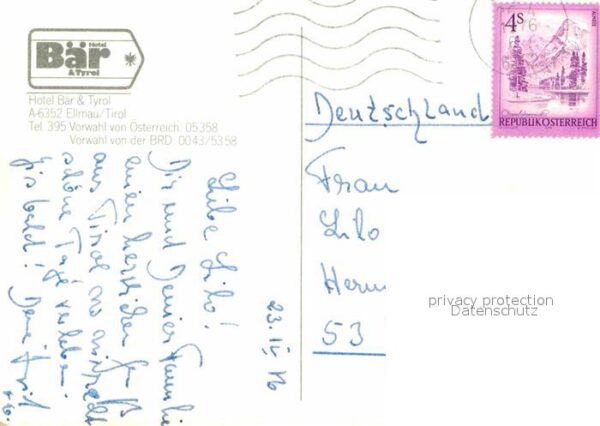 Hotel
Bär
& Tyrol
Hotel Bär & Tyrol
A-6352 Ellmau/Tirol
Tel. 395 Vorwahl von Österreich: 05358
Vorwahl von der BRD: 0043/5358
Liebe Lilo!
Dir und Deiner Familie
einen herzlichen Gruß
aus Tirol wo wir
schöne Tage verleben.
Bis bald! Deine
4S
REPUBLIK ÖSTERREICH
Deutschland
Frau
Lilo
Herm
53
privacy protection
Datenschutz